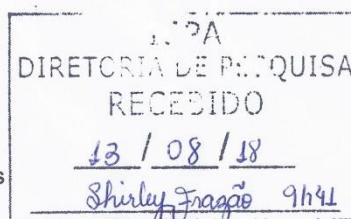 DIRETORIA DE PESQUISA
RECEBIDO
13 / 08 / 18
s
Shirley Frazão 9h41